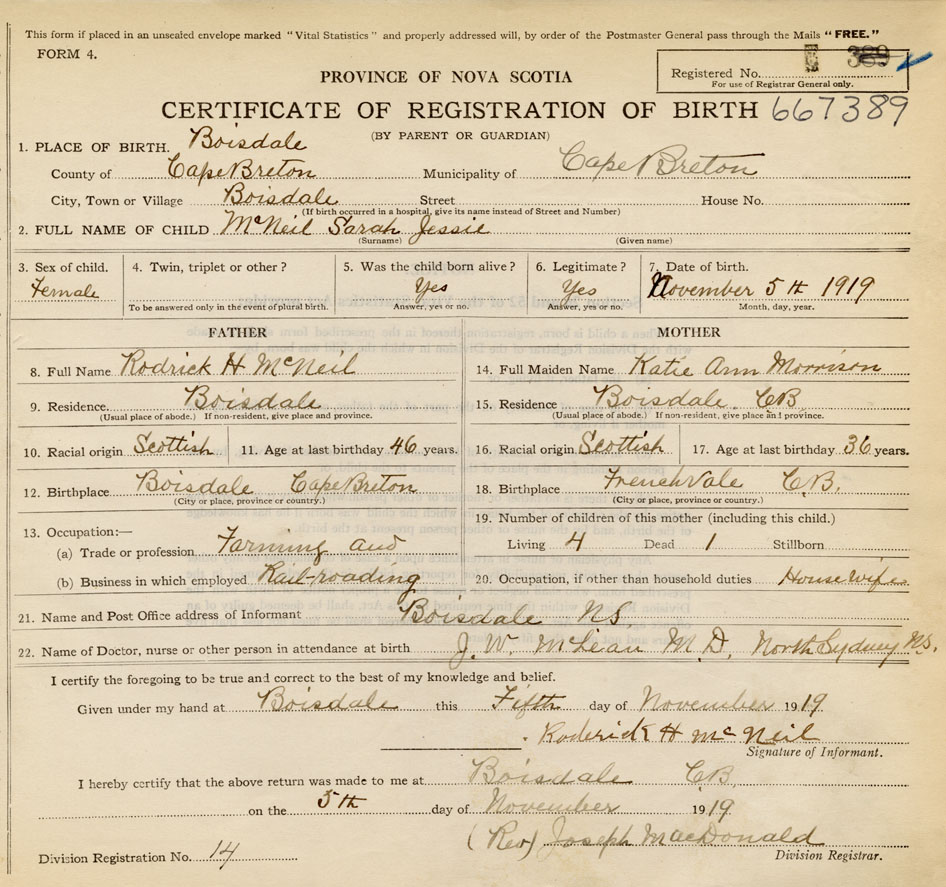 This form if placed in an unsealed envelope marked "Vital Statistics" and properly addressed will, by order of the Postmaster General pass through the Mails "FREE."
FORM 4.
389
Registered No.
For use of Registrar General only.
PROVINCE OF NOVA SCOTIA
CERTIFICATE OF REGISTRATION OF BIRTH 667389
(BY PARENT OR GUARDIAN)
1. PLACE OF BIRTH. Boisdale
County of Cape Breton Municipality of Cape Breton
City, Town or Village Boisdale Street House No.
(If birth occurred in a hospital, give its name instead of Street and Number)
2. FULL NAME OF CHILD McNeil Sarah Jessie
(Surname) (Given name)
3. Sex of child. 4. Twin, triplet or other? 5. Was the child born alive? 6. Legitimate? 7. Date of birth.
Female Yes Yes November 5th 1919
To be answered only in the event of plural birth. Answer, yes or no. Answer, yes or no. Month, day, year.
FATHER MOTHER
8. Full Name Rodrick H McNeil 14. Full Maiden Name Katie Ann Morrison
9. Residence. Boisdale 15. Residence Boisdale, C.B.
(Usual place of abode.) If non-resident, give place and province. (Usual place of abode.) If non-resident, give place and province.
10. Racial origin Scottish 11. Age at last birthday 46 years. 16. Racial origin Scottish 17. Age at last birthday 36 years.
12. Birthplace Boisdale Cape Breton 18. Birthplace French Vale C.B.
(City or place, province or country.) (City or place, province or country.)
13. Occupation:— 19. Number of children of this mother (including this child.)
(a) Trade or profession Farming and Living 4 Dead 1 Stillborn
(b) Business in which employed Rail-roading 20. Occupation, if other than household duties House wife
21. Name and Post Office address of Informant Boisdale N.S.
22. Name of Doctor, nurse or other person in attendance at birth J. W. McLean M.D. North Sydney N.S.
I certify the foregoing to be true and correct to the best of my knowledge and belief.
Given under my hand at Boisdale this Fifth day of November 1919
Roderick H McNeil
Signature of Informant.
I hereby certify that the above return was made to me at Boisdale C.B.
on the 5th day of November 1919.
(Rev) Joseph MacDonald
Division Registration No. 14 Division Registrar.